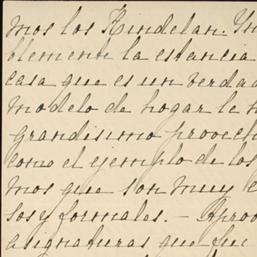 mos los Kindelan. Yn
blemente la estancia
casa que es un verdad
modelo de hogar le h
grandisimo provech
como el ejemplo de los
mos que son muy e
sos y formales. – Aprov
asignaturas que fue